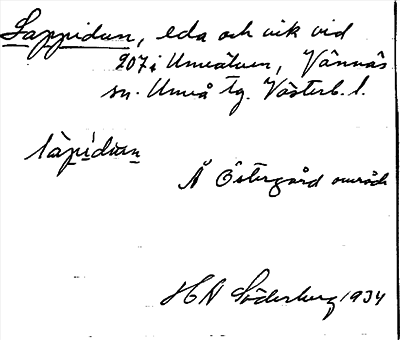 Lappidan, eda och vik vid
207 i Umeälven, Vännäs
sn. Umeå tg. Västerb. l.
làpidian
Å Östergård område
H N Söderberg 1934